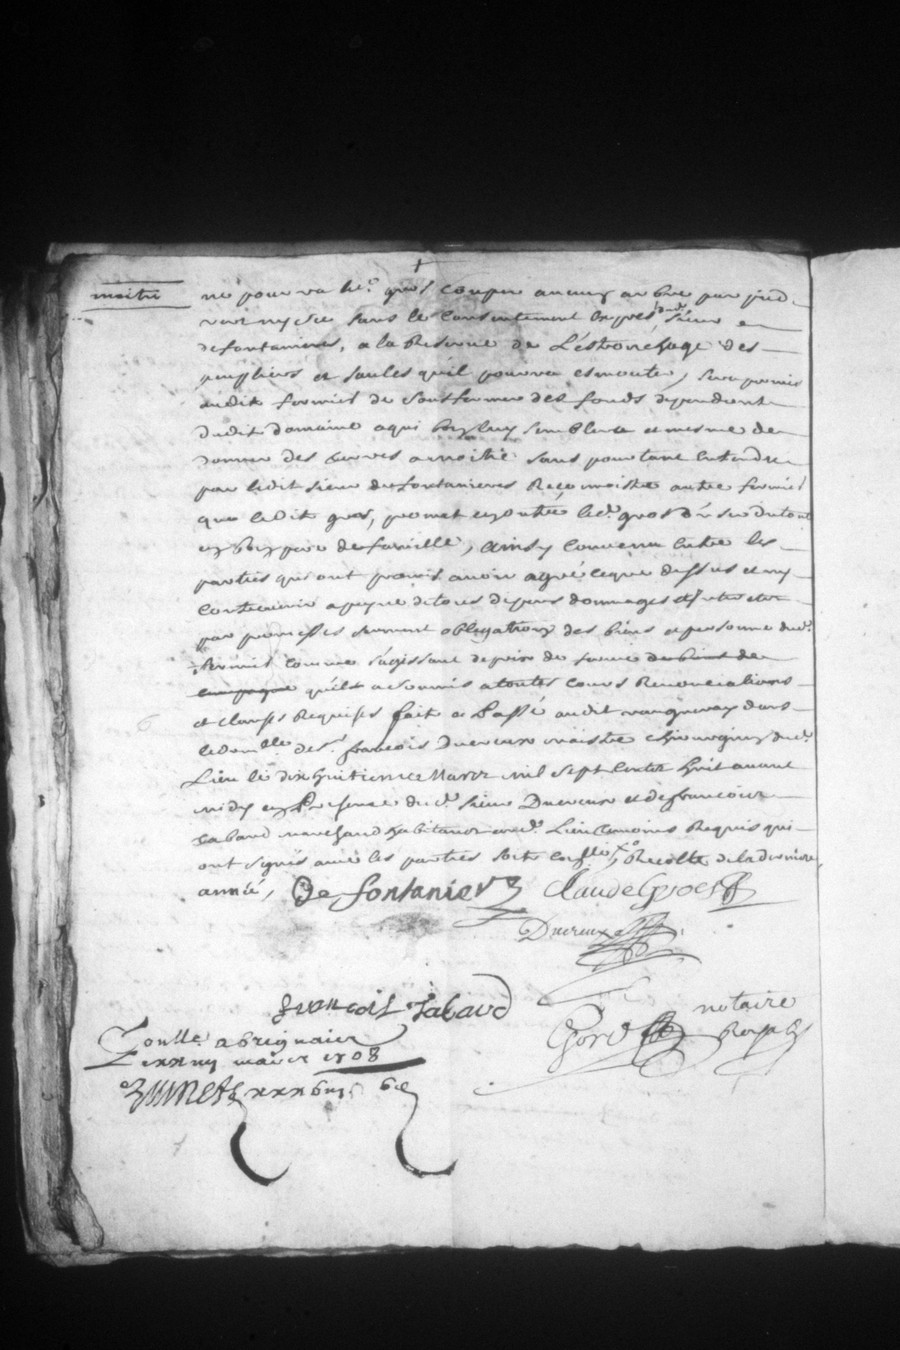 moitié
ne pourra led. gros couper aucung arbre par pied
vert ny sec sans le consentement exprès dud. sieur
defontanieres, a la Reserve de L'estronchage des
peupliers et saules quil pourra esmonter, sera permis
audit fermier de sousfermer des fonds dependent
dudit domaine a qui bon luy semblera et mesme de
donner des terres a moitié sans pourtant entendre
par ledit sieur defontanieres Reconnoistre autre fermier
que ledit gros, promet en outre led. gros d'
en bon pere de famille, Ainsy convenu entre les
parties qui ont promis avoir agreé ce que dessus et ny
contrevenir a peyne de tous depens dommages et
par promesses serment obligations des biens et personne dud.
fermier comme s'agissant de prix de ferme
quils a soumis a toutes cours Renonciations
et clauses Requises fait et Passé audit dans
le domille de sr francois Ducreux maistre Chirurgien dud.
Lieu le dix huitieme Mars mil sept cents huit avant
midy en Presence dud. sieur Ducreux et de francois
tabard marchand habitant aud. Lieu temoins Requis qui
ont signés avec les parties Recolte de la derniere
année, De fontanieres Claude Gros
Ducreux
francois Tabard
notaire
Conlle. a brignaier
mars 1708